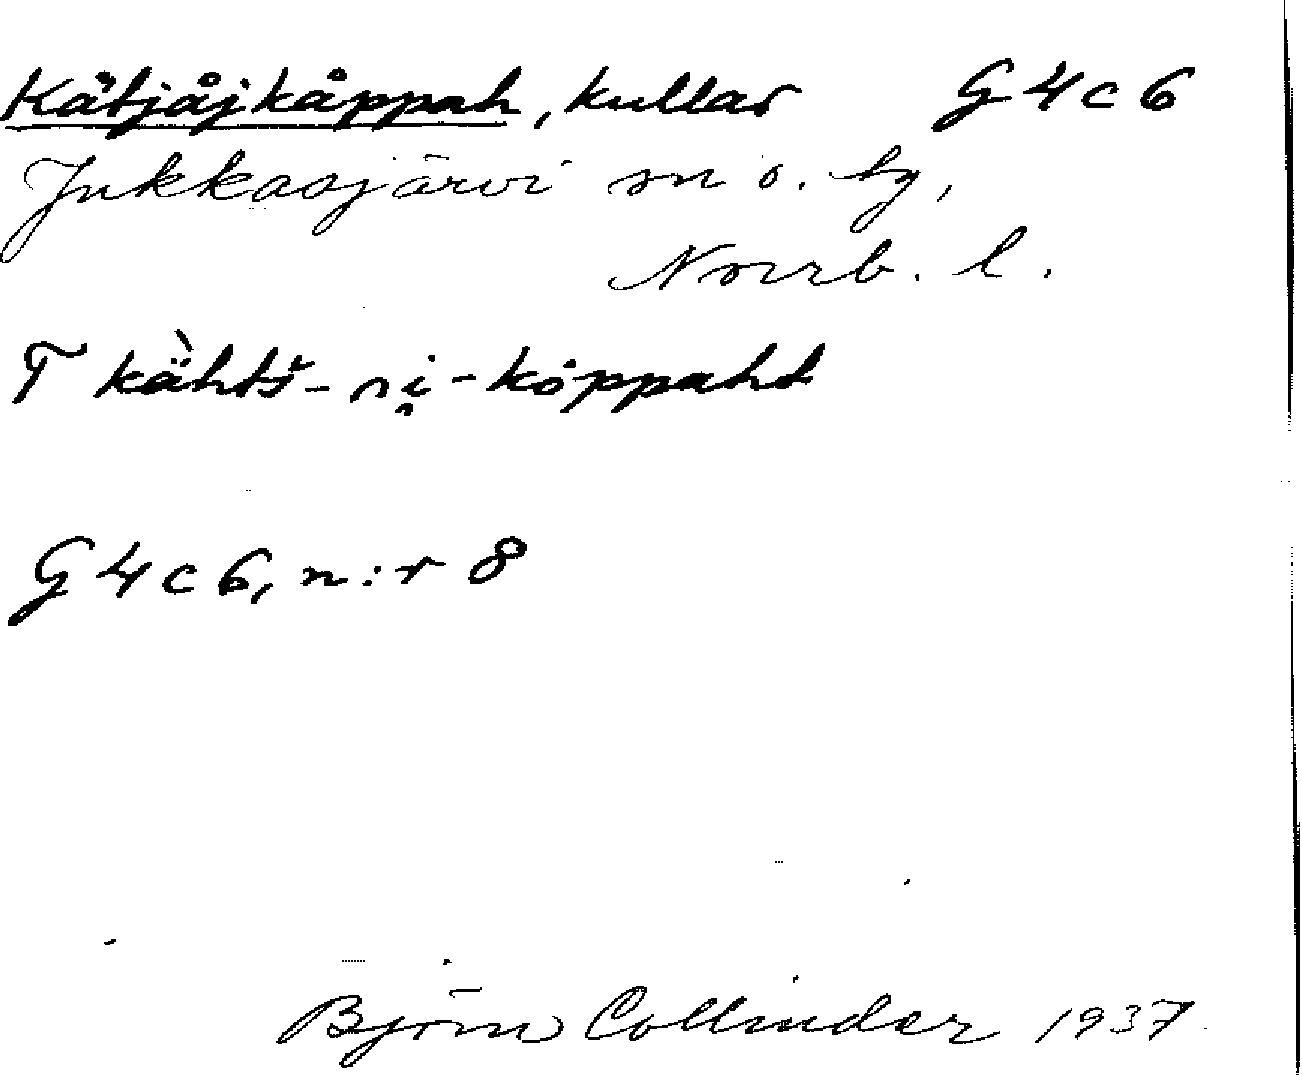 Kätjåjkåppah, kullar G 4 c 6
Jukkasjärvi sn o. tg,
Norrb. l.
T kä̀htš̌-ni̯-kåppaht
G 4 c 6, n:r 8
Björn Collinder 1937